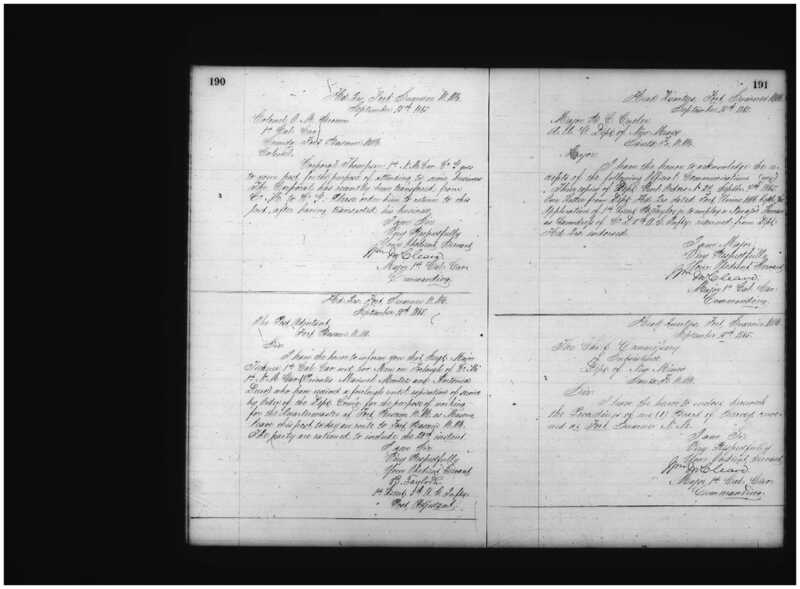 190
Hd. Qrs. Fort Sumner N.M.
September 1865
Colonel
1st Cal. Cav.
Comdg. Fort Bascom N.M.
Colonel,
Corporal Thompson 1st N.M. Cav. Co. goes
to your post for the purpose of attending to some business
The Corporal has recently been transferred from
Co. M. to Co. Please order him to return to this
post, after having transacted his business.
I am Sir
Very Respectfully
Your Obedient Servant
Wm. McCleave
Major 1st Cal. Cav.
Commanding.
Hd. Qrs. Fort Sumner N.M.
September 1865.
The Post Adjutant,
Fort Bascom N.M.
Sir
I have the honor to inform you that Major
1st Cal. Cav. and two Men on Furlough of Co.
1st N.M. Cav. (Privates Manuel and
) who have received a furlough until expiration of service
by order of the Dept. Comdg. for the purpose of working
for the Quartermaster at Fort Bascom N.M. as
leave this post today en route to Fort Bascom N.M.
The party are rationed to include the instant
I am Sir
Very Respectfully
Your Obedient Servant
Taylor
1st Lieut. 5th U.S. Infty.
Post Adjutant.
191
Head Quarters, Fort Sumner N.M.
September 1865.
Major
A.A.G. Dept. of New Mexico
Santa Fe N.M.
Major
I have the honor to acknowledge the re-
ceipts of the following Official Communications
of Dept. Genl. Orders No. 1865
One Letter from Dept. Hd. Qrs. dated
Application of 1st Lieut. Taylor to employ a Navajo Woman
as Laundress of Co. 5th U.S. Infty. returned from Dept.
Hd. Qrs. endorsed.
I am Major,
Very Respectfully
Your Obedient Servant
Wm. McCleave
Major 1st Cal. Cav.
Commanding.
Head Quarters, Fort Sumner N.M.
September 1865.
The Chief Commissary
of Subsistence
Dept. of New Mexico
Santa Fe N.M.
Sir
I have the honor to inclose herewith
the Proceedings of one (1) Board of Survey conve-
ned at Fort Sumner N.M.
I am Sir
Very Respectfully
Your Obedient Servant
Wm. McCleave
Major 1st Cal. Cav.
Commanding.